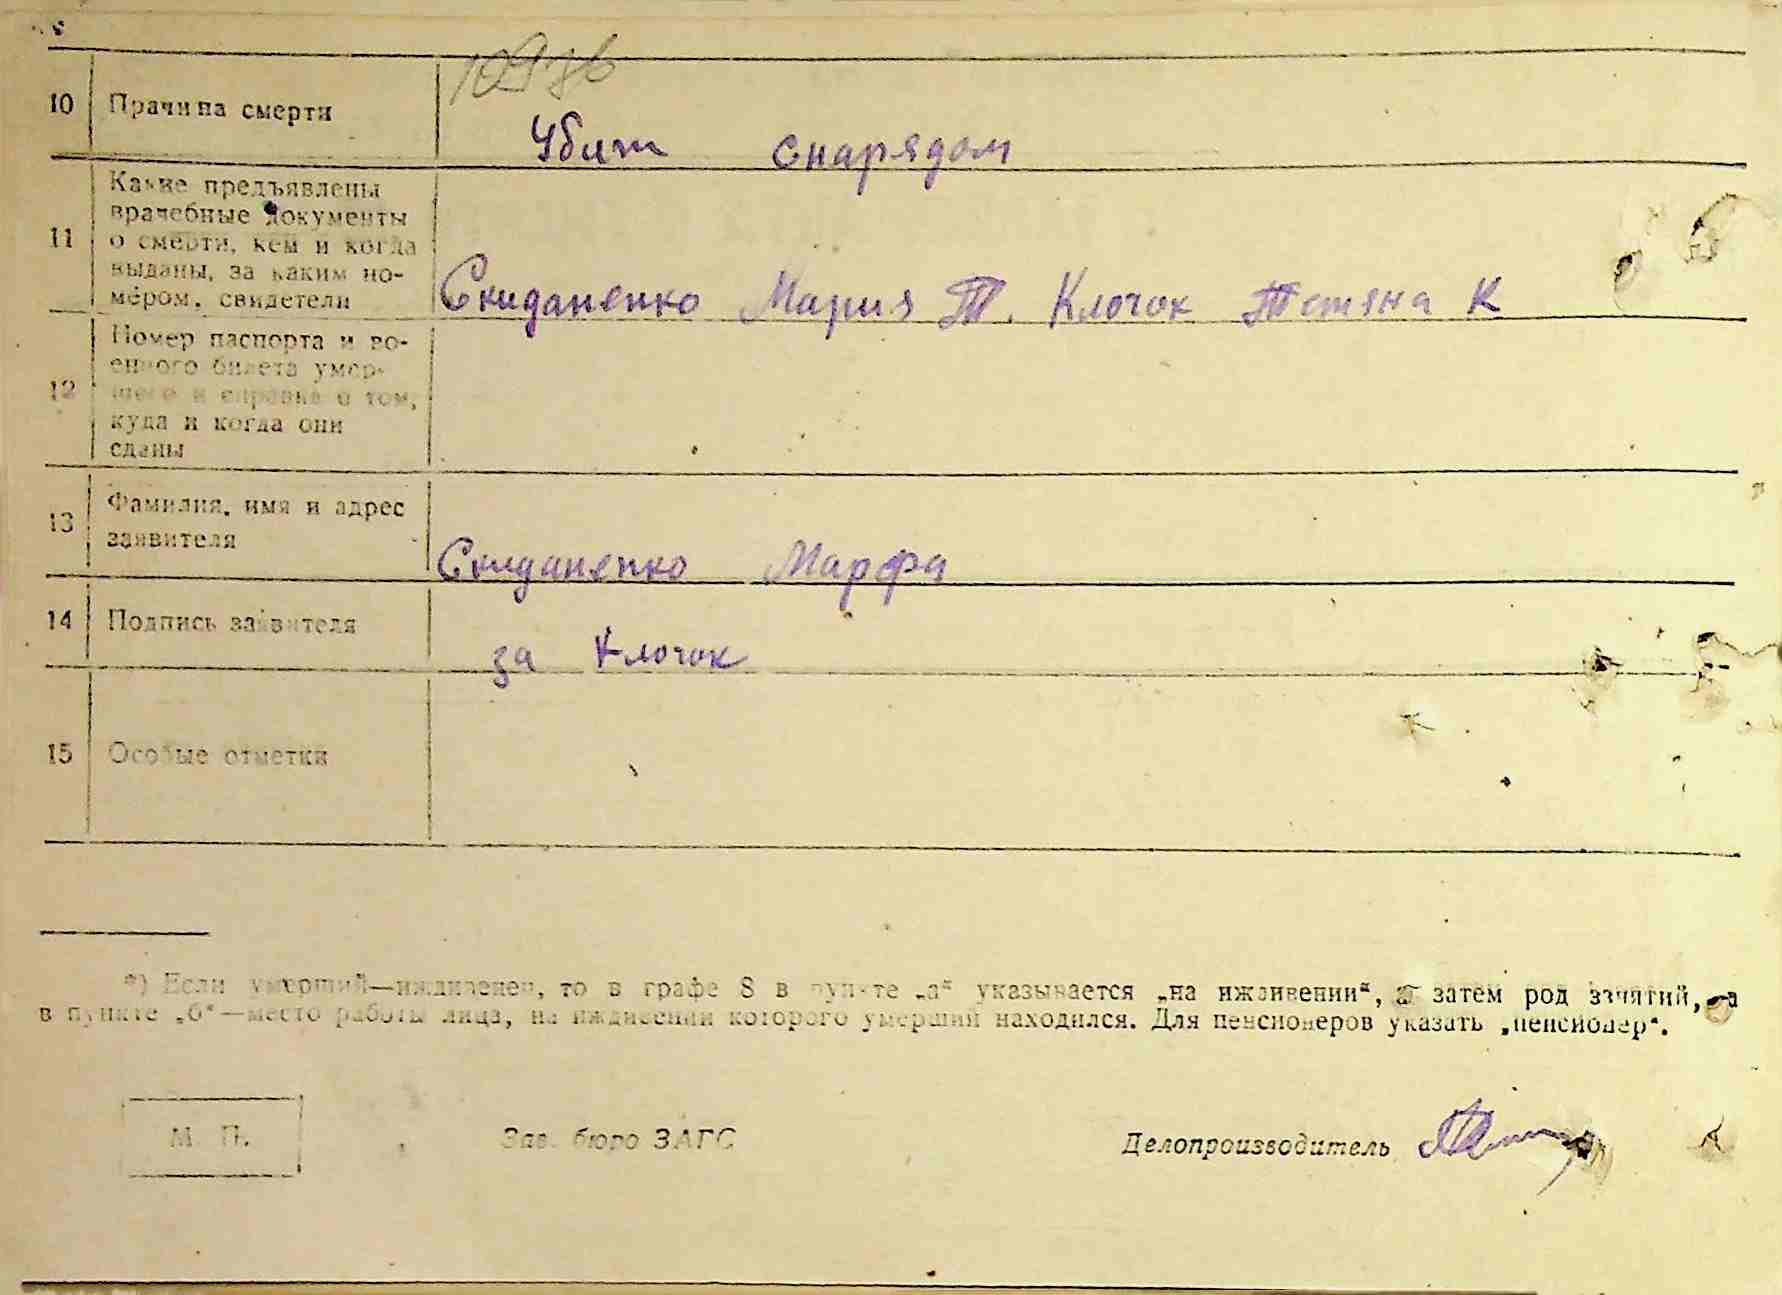 10 Причина смерти
Убит снарядом
11 Какие предъявлены
врачебные документы
о смерти, кем и когда
выданы, за каким но-
мером, свидетели
Скиданенко Мария Т. Клочок Тетяна К
12 Номер паспорта и во-
енного билета умер-
шего и справка о том,
куда и когда они
сданы
13 Фамилия, имя и адрес
заявителя
Скиданенко Марфа
14 Подпись заявителя
за Клочок
15 Особые отметки
*) Если умерший—иждивенец, то в графе 8 в пункте „а“ указывается „на иждивении“, а затем род занятий, а
в пункте „б“—место работы лица, на иждивении которого умерший находился. Для пенсионеров указать „пенсионер“.
М. П. Зав. бюро ЗАГС Делопроизводитель